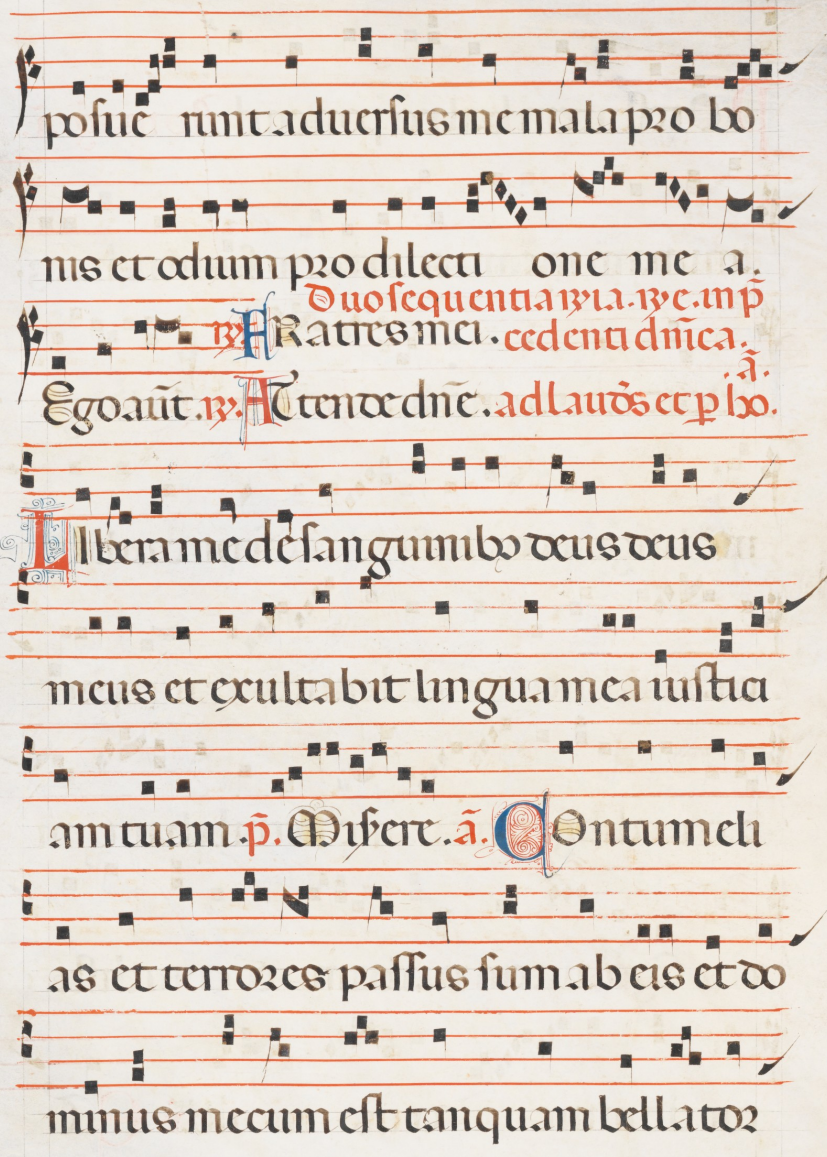 posue runt aduersus me mala pro bo
nis et odium pro dilecti one me a.
Duo sequentia ꝶia. ꝶe. in p̄
ꝶ. FRatres mei. cedenti dn̄ica.
ā.
Ego aūt. ꝶ. ATtende dn̄e. ad laud̄s et p ho.
LIbera me de sanguinibꝰ deus deus
meus et exultabit lingua mea iustici
am tuam. p̄. Misere. ā. COntumeli
as et terrores passus sum ab eis et do
minus mecum est tanquam bellator